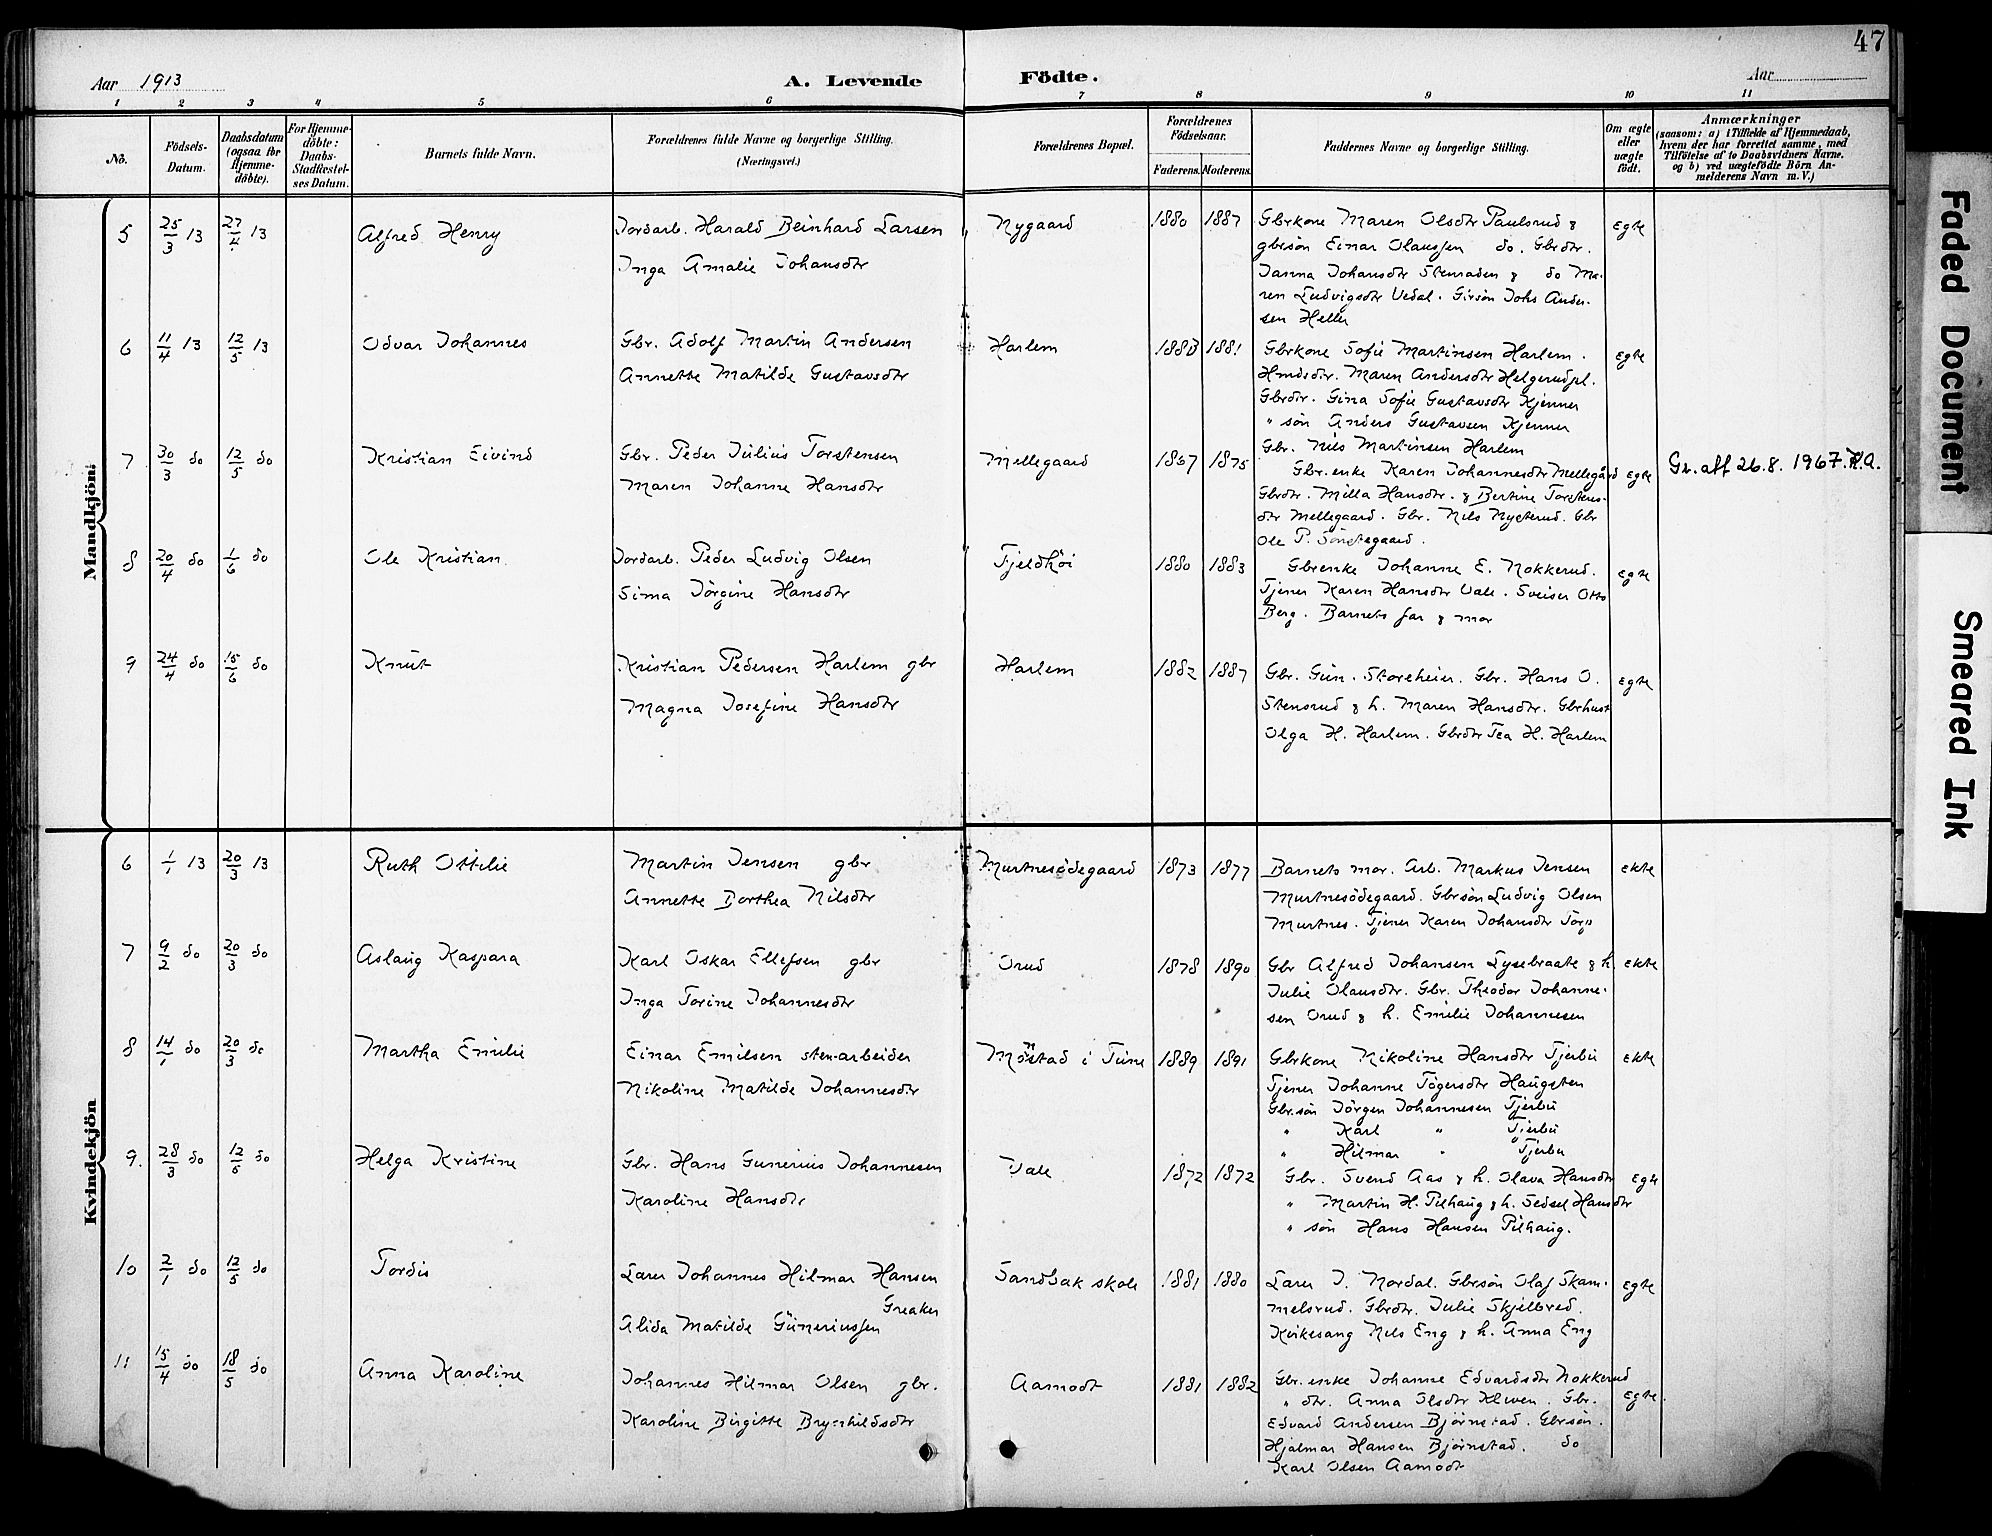 47
Aar 1913
A. Levende Födte.
Aar
1 2 3 4 5 6 7 8 9 10 11
No.
Födsels-Datum.
Daabsdatum (ogsaa for Hjemme-döbte).
For Hjemme-döbte: Daabs-Stadfæstel-ses Datum.
Barnets fulde Navn.
Forældrenes fulde Navne og borgerlige Stilling.
(Næringsvei.)
Forældrenes Bopæl.
Forældrenes Födselsaar.
Faderens. Moderens.
Faddernes Navne og borgerlige Stilling.
Om ægte eller uægte födt.
Anmærkninger
(saasom: a) i Tilfælde af Hjemmedaab, hvem der har forrettet samme, med Tilföielse af to Daabsvidners Navne. og b) ved uægtefödte Börn An-melderens Navn m. V.)
Mandkjön:
5 25/3 13 27/4 13 Alfred Henry Jordarb. Harald Beinhard Larsen Nygaard 1880 1887 Gbrkone Maren Olsdtr Paulsrud & Egte
Inga Amalie Johansdtr gbrsön Einar Olaussen do. Gbrdtr.
Janna Johansdtr Stenraden & do Ma-
ren Ludvigsdtr Vedal. Girsön Johs Ander-
sen Heller
6 11/4 13 12/5 13 Odvar Johannes Gbr. Adolf Martin Andersen Harlem 1883 1881 Gbrkone Sofie Martinsen Harlem. Egte
Annette Matilde Gustavsdtr Hmdsdtr. Maren Andersdtr Helgerudpl.
Gbrdtr. Gina Sofie Gustavsdtr Kjenner
" sön Anders Gustavsen Kjenner
Gbr. Nils Martinsen Harlem
7 30/3 do 12/5 do Kristian Eivind Gbr. Peder Julius Torstensen Mellegaard 1867 1875 Gbr.enke Karen Johannesdtr Mellegård Egte Gr. att 26.8. 1967. K.A.
Maren Johanne Hansdtr Gbrdtr. Milla Hansdtr. & Bertine Torstens-
dtr Mellegaard. Gbr. Nils Nysterud. Gbr
Ole P. Sönstegaard.
8 20/4 do 1/6 do Ole Kristian Jordarb. Peder Ludvig Olsen Fjeldhöi 1880 1883 Gbrenke Johanne E. Nokkerud. Egte
Sima Jörgine Hansdtr Tjener Karen Hansdtr Vale. Sveiser Otto
Berg. Barnets far & mor
9 24/4 do 15/6 do Knut Kristian Pedersen Harlem gbr Harlem 1882 1887 Gbr. Gun. Storeheier. Gbr. Hans O. Egte
Magna Josefine Hansdtr Stensrud & h. Maren Hansdtr. Gbrhust
Olga H. Harlem. Gbrdtr Tea H. Harlem
Kvindekjön
6 1/1 13 20/3 13 Ruth Ottilie Martin Jensen gbr Murtnesödegaard 1873 1877 Barnets mor. Arb. Markus Jensen Ekte
Annette Dorthea Nilsdtr Murtnesödegaard. Gbrsön Ludvig Olsen
Murtnes. Tjener Karen Johansdtr Torp
7 9/2 do 20/3 do Aslaug Kaspara Karl Oskar Ellefsen gbr Orud 1878 1890 Gbr Alfred Johansen Lysebraate & h. Ekte
Inga Torine Johannesdtr Julie Olausdtr. Gbr. Theodor Johanne-
sen Orud & h. Emilie Johannesen
8 14/1 do 20/3 do Martha Emilie Einar Emilsen stenarbeider Möstad i Tune 1889 1891 Gbrkone Nikoline Hansdtr Tjerbu Ekte
Nikoline Matilde Johannesdtr Tjener Johanne Tögersdtr Haugsten
Gbr.sön Jörgen Johannesen Tjerbu
" Karl " Tjerbu
" Hilmar " Tjerbu
9. 28/3 do 12/5 do Helga Kristine Gbr. Hans Gunerius Johannesen Vale 1872 1872 Gbr. Svend Aas & h. Olava Hansdtr Egte
Karoline Hansdtr " Martin H. Pilhaug & h. Sedsel Hansdtr
" sön Hans Hansen Pilhaug.
10 2/1 do 12/5 do Tordis Lærer Johannes Hilmar Hansen Sandbak skole 1881 1880 Lærer J. Nordal. Gbrsön Olaf Skam- Egte
Greaker melsrud. Gbrdtr. Julie Skjelbred.
Alida Matilde Guneriussen Kirkesang Nils Eng & h. Anna Eng
11 15/4 do 18/5 do Anna Karoline Johannes Hilmar Olsen gbr. Aamodt 1881 1882 Gbr.enke Johanne Edvardsdtr Nokkerud Egte.
Karoline Birgitte Brynhildsdtr " dtr. Anna Olsdtr Kleven. Gbr.
Edvard Andersen Björnstad. Gbrsön.
Hjalmar Hansen Björnstad. do
Karl Olsen Aamodt
Faded Document
Smeared Ink